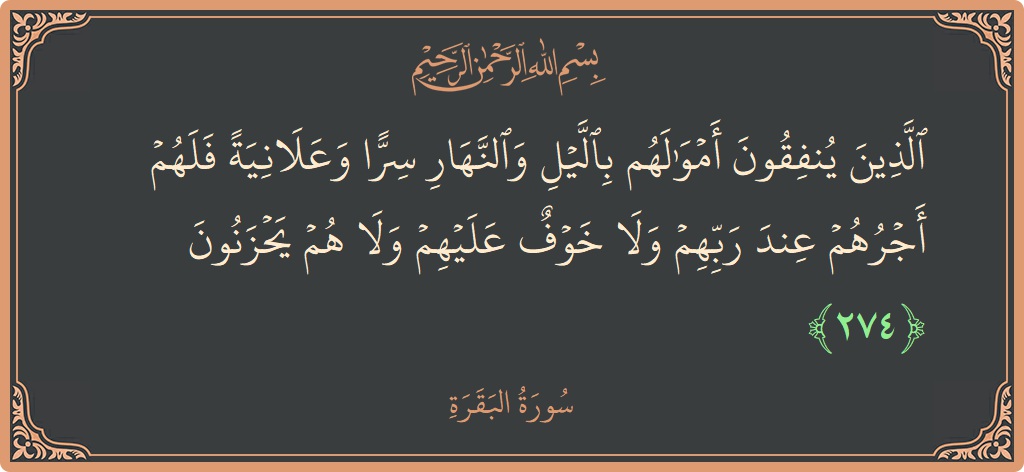 بِسْمِ اللهِ الرَّحْمٰنِ الرَّحِيْمِ
ٱلَّذِينَ يُنفِقُونَ أَمْوَٰلَهُم بِٱلَّيْلِ وَٱلنَّهَارِ سِرًّا وَعَلَانِيَةً فَلَهُمْ
أَجْرُهُمْ عِندَ رَبِّهِمْ وَلَا خَوْفٌ عَلَيْهِمْ وَلَا هُمْ يَحْزَنُونَ
﴿٢٧٤﴾
سُورَةُ البَقَرَةِ